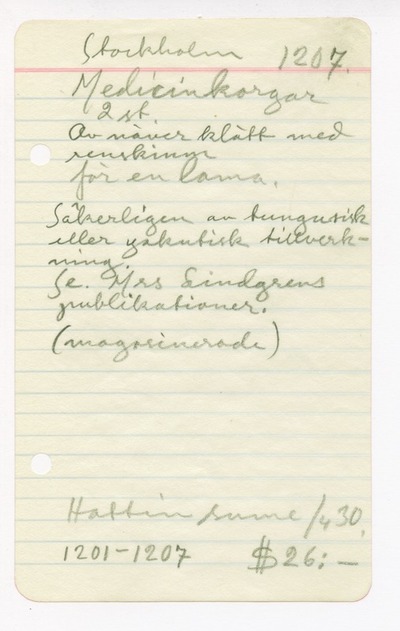 Stockholm 1207.
Medicinkorgar
2 st.
Av näver klätt med
renskinn
för en lama.
Säkerligen av tungusisk
eller yakutisk tillverk-
ning.
Se. Mrs Lindgrens
publikationer.
(magasinerade)
Hattin sume /4 30.
1201-1207 $26:-